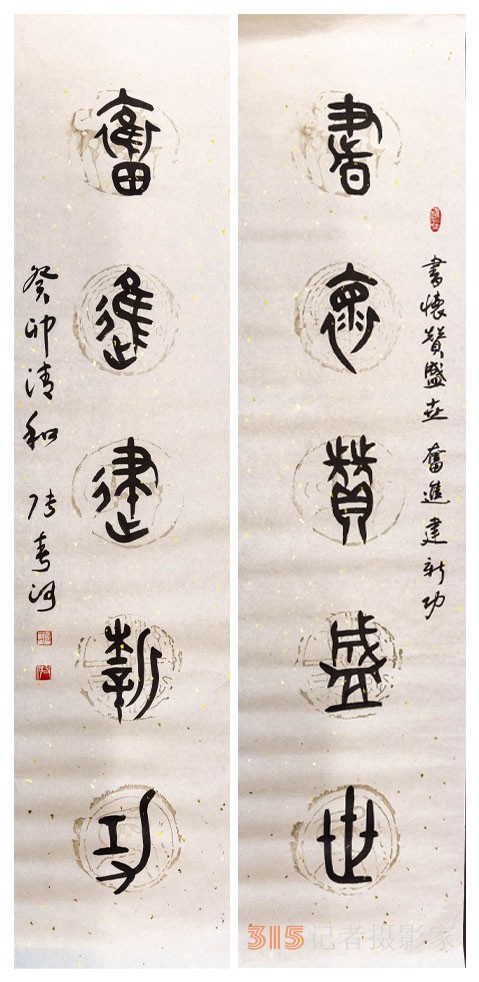 書懷贊盛世 奮進建新功
書懷贊盛世
奮進建新功
癸卯清和 張春河
315记者摄影家